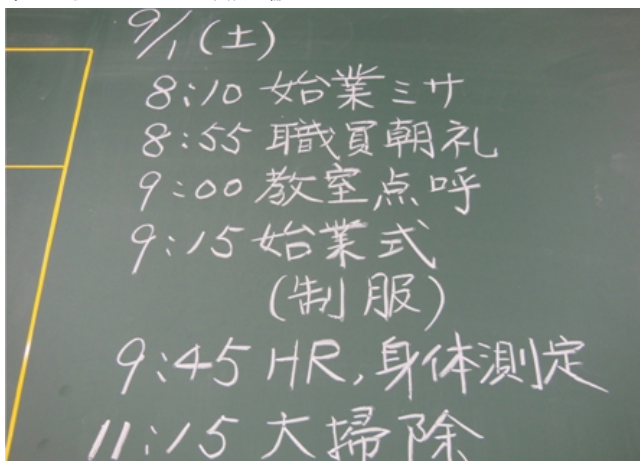 9/1(土)
8:10 始業ミサ
8:55 職員朝礼
9:00 教室点呼
9:15 始業式
(制服)
9:45 HR,身体測定
11:15 大掃除